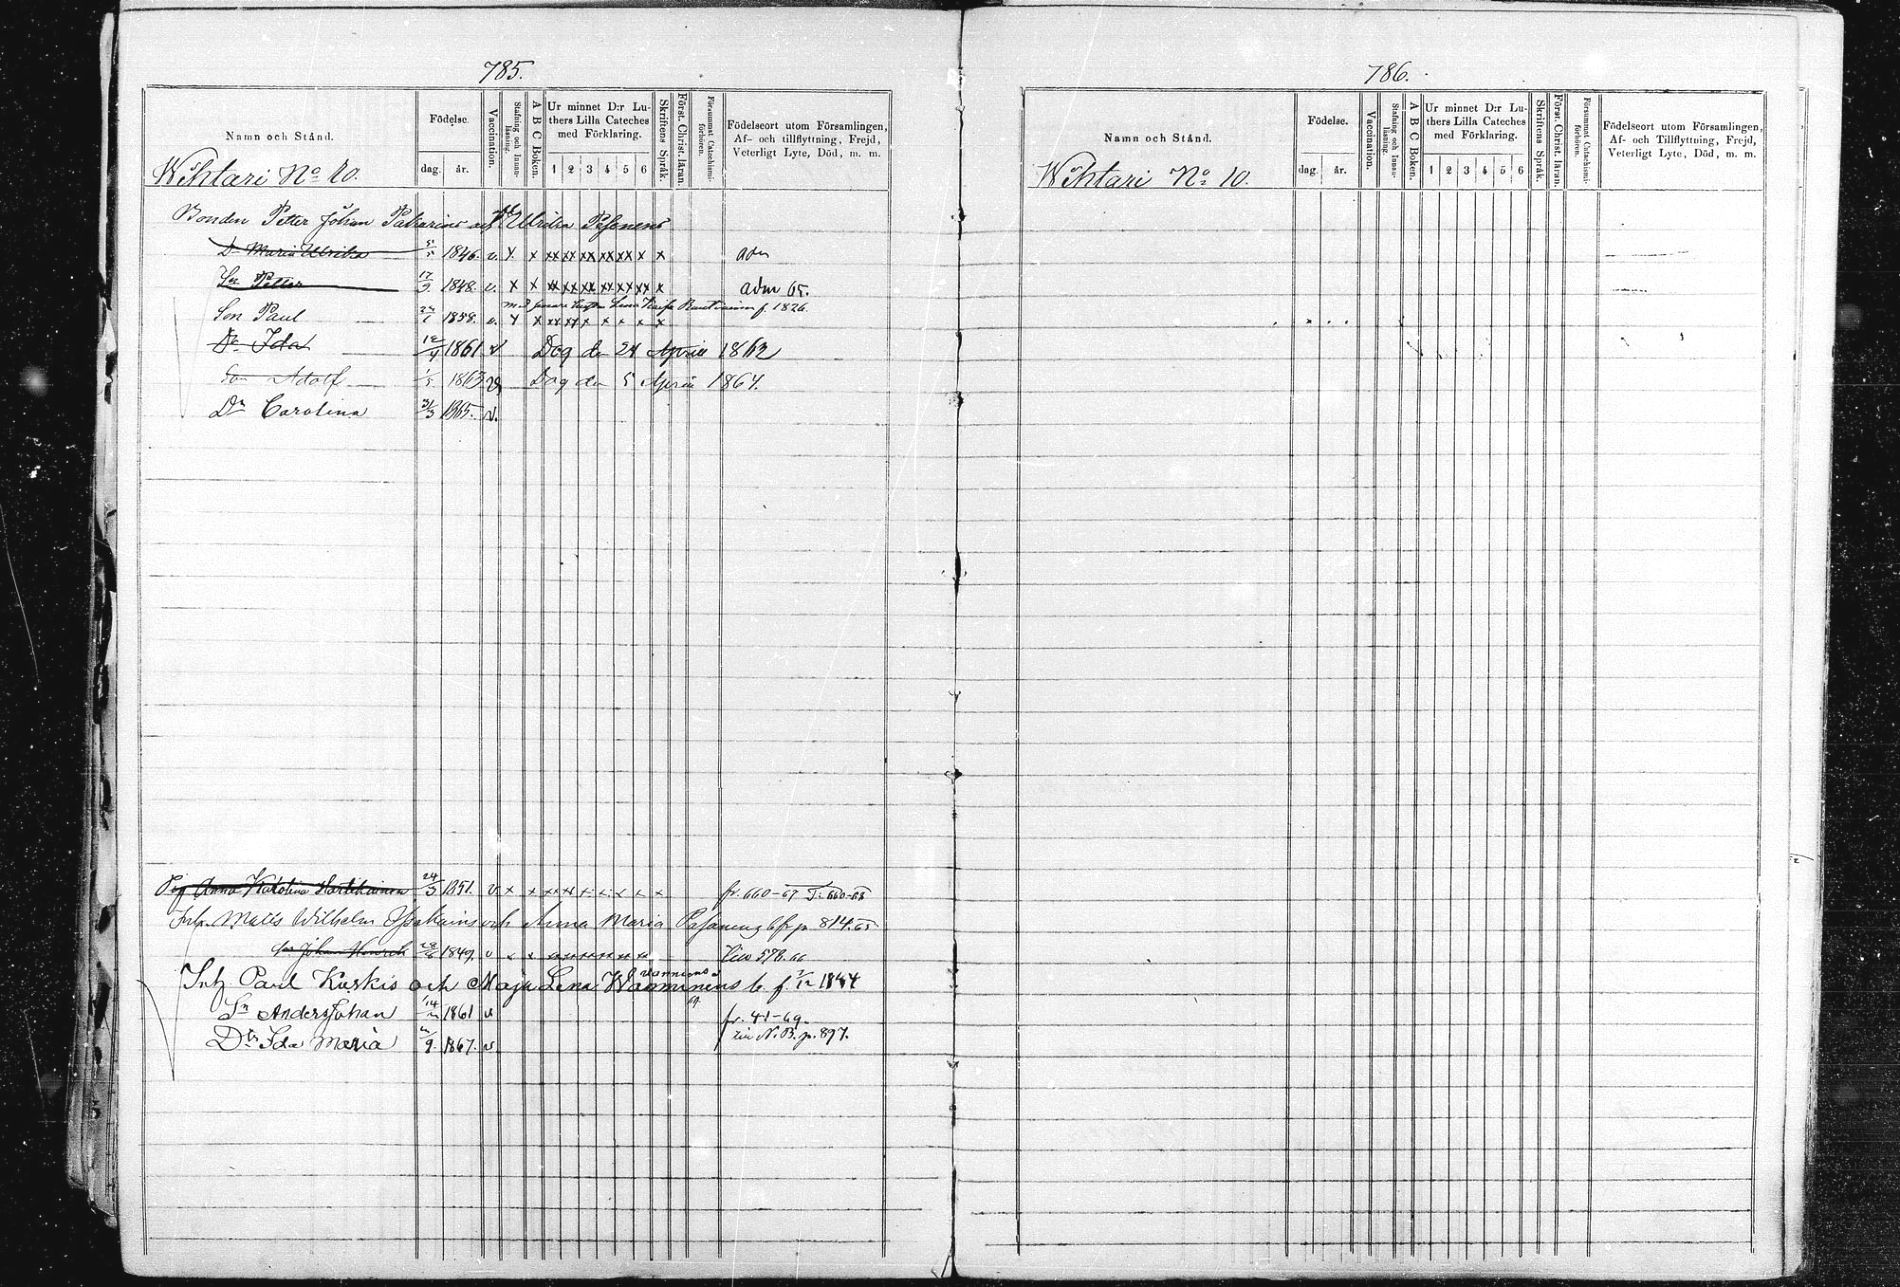 785.
Namn och Stånd.
Födelse.
dag. år.
Vaccination.
Stafning och Innanläsning.
A B C Boken.
Ur minnet D:r Luthers Lilla Cateches med Förklaring.
1 2 3 4 5 6
Skriftens Språk.
Först. Christ. läran.
Försummat Catechismiförhören.
Födelseort utom Församlingen,
Af- och tillflyttning, Frejd,
Veterligt Lyte, Död, m. m.
Wihtari No 10.
Bonden Petter Johan och Ulrika
Dr Maria Ulrika 1846. v. x x xx xx xx xx x x x adm
Sn Petter 17/9 1848. v. x x xx xx xx xx xx x adm 65.
f. 1826.
Son Paul 1858. v. x x xx xx x x x x x
Dr Ida 12/4 1861 v Dog den 24 April 1862
Son Adolf 1/5 1863 v Dog den 5 April 1867.
Dr Carolina 31/3 1865. v.
Pig Anna Karolina 24/3 1851. v x x fr. 660-67 T. 660-68
Inh. Matts Wilhelm och Anna Maria fr p. 814.65
Son Johan Henrik 1849. v 578.66
Inh Paul Kuskis och Maja Lena Wanninens b. f. 1844
Sn Anders Johan 1861 v fr. 41-69.
Dr Ida Maria 1867. v. N. B. p. 897.
786.
Namn och Stånd.
Födelse.
dag. år.
Vaccination.
Stafning och Innanläsning.
A B C Boken.
Ur minnet D:r Luthers Lilla Cateches med Förklaring.
1 2 3 4 5 6
Skriftens Språk.
Först. Christ. läran.
Försummat Catechismiförhören.
Födelseort utom Församlingen,
Af- och Tillflyttning, Frejd,
Veterligt Lyte, Död, m. m.
Wihtari No 10.